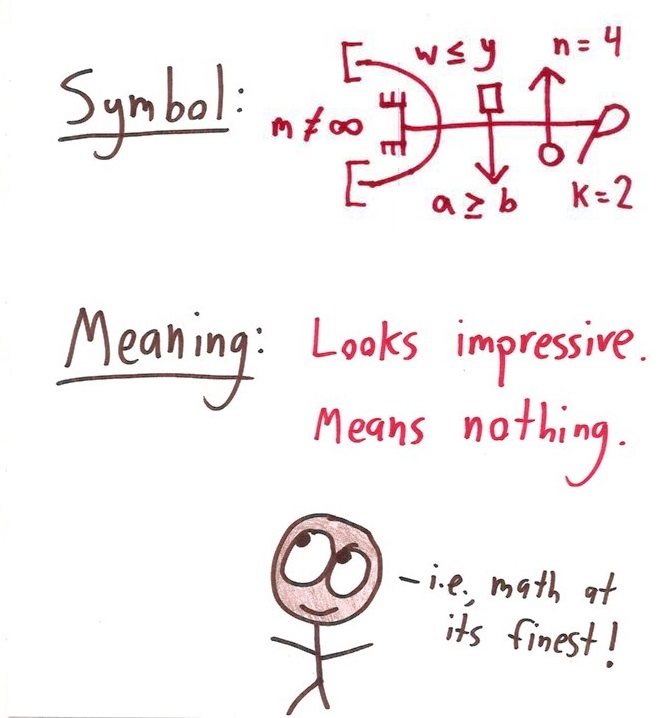 Symbol:
w ≤ y
n = 4
m ≠ ∞
a ≥ b
k = 2
Meaning: Looks impressive.
Means nothing.
– i.e., math at
its finest!